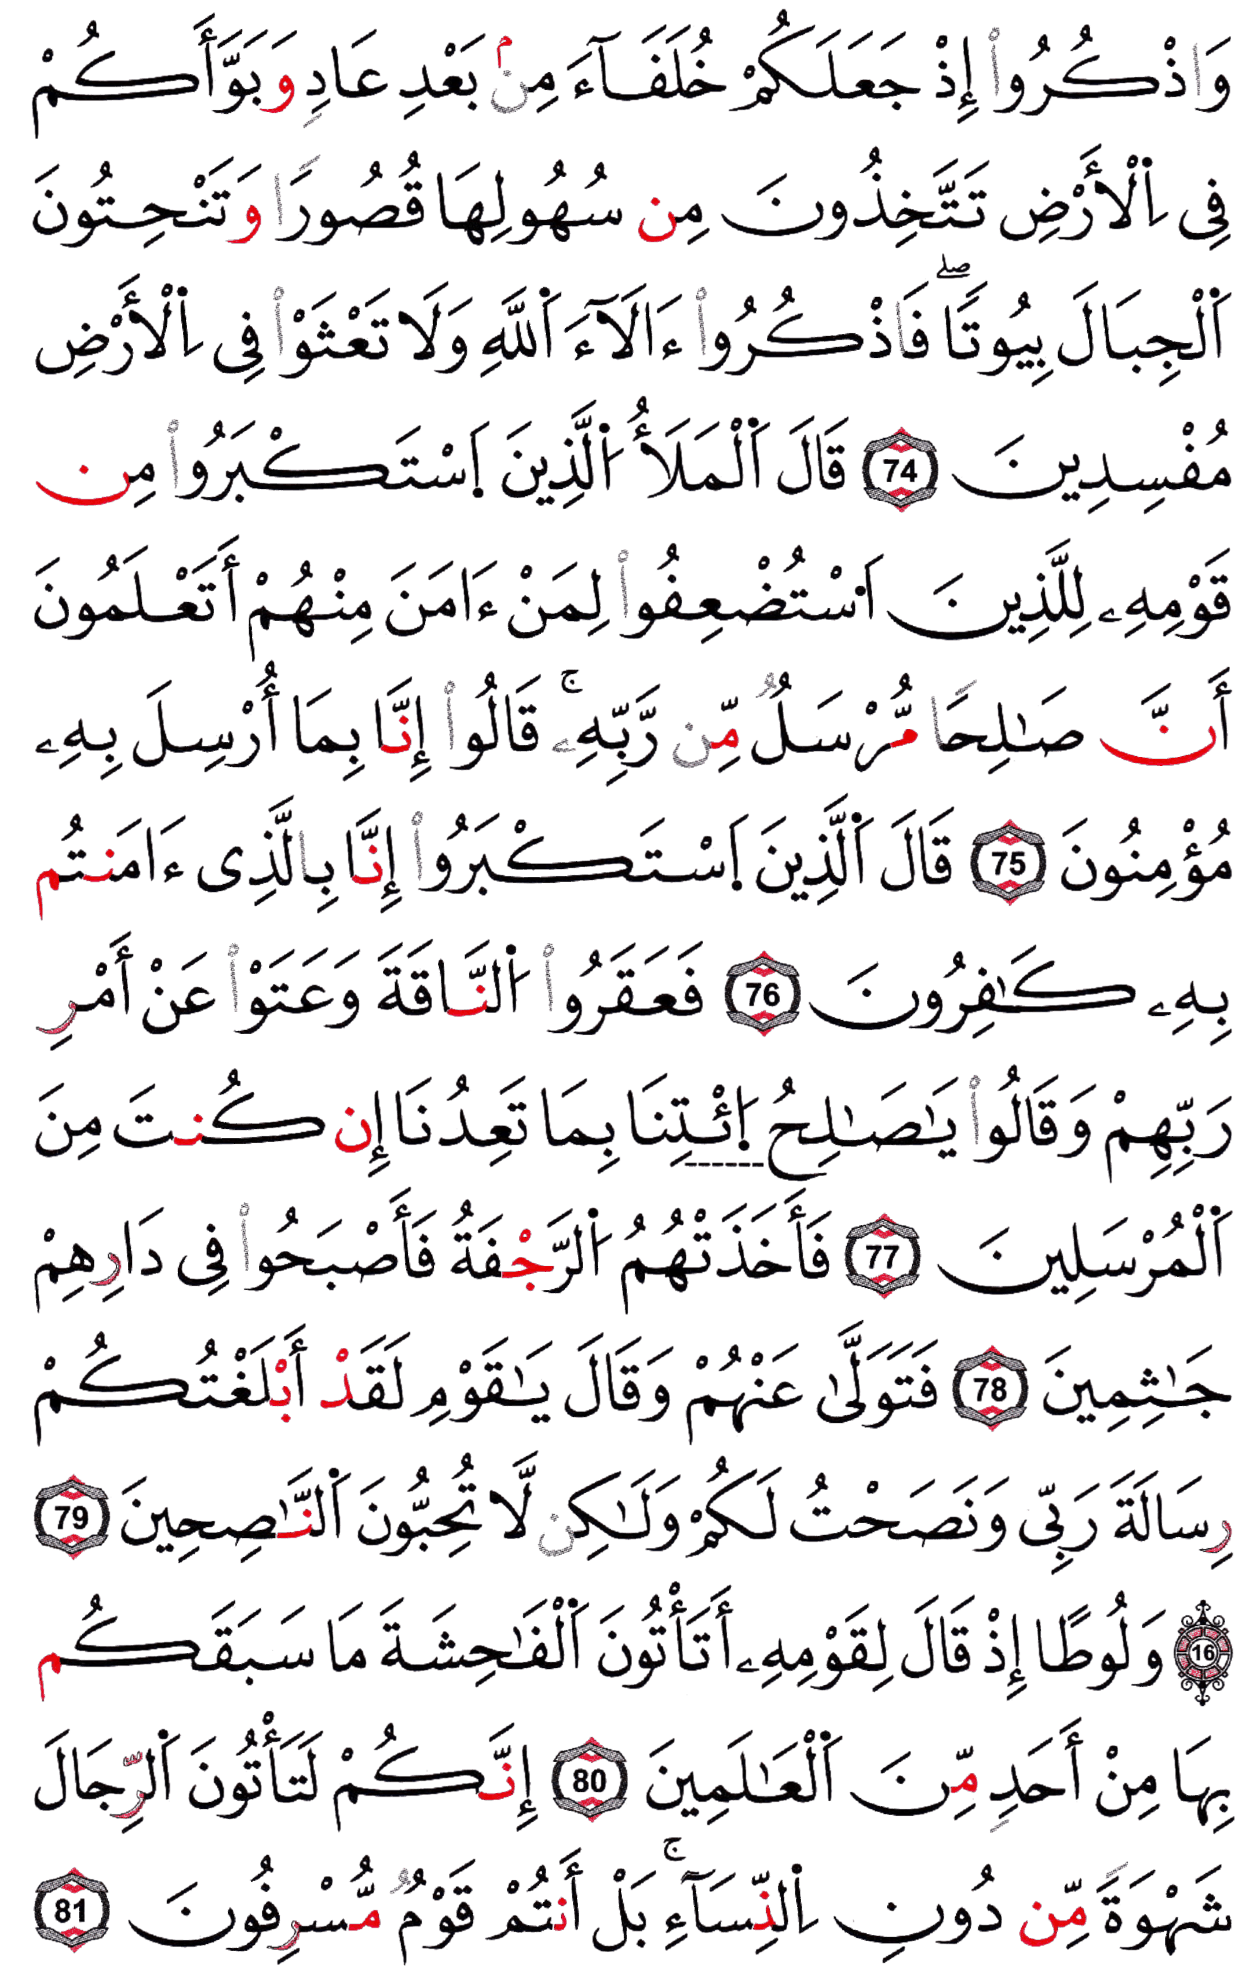 وَاذْكُرُواْ إِذْ جَعَلَكُمْ خُلَفَآءَ مِنۢ بَعْدِ عَادٍ وَبَوَّأَكُمْ
فِى اِ۬لْأَرْضِ تَتَّخِذُونَ مِن سُهُولِهَا قُصُورًا وَتَنْحِتُونَ
اَ۬لْجِبَالَ بِيُوتًا ۖ فَاذْكُرُواْ ءَالَآءَ اَ۬للَّهِ وَلَا تَعْثَوْاْ فِى اِ۬لْأَرْضِ
مُفْسِدِينَ 74 قَالَ اَ۬لْمَلَأُ اُ۬لَّذِينَ اَ۪سْتَكْبَرُواْ مِن
قَوْمِهِۦ لِلَّذِينَ اَ۟سْتُضْعِفُواْ لِمَنْ ءَامَنَ مِنْهُمْ أَتَعْلَمُونَ
أَنَّ صَٰلِحًا مُّرْسَلٌ مِّن رَّبِّهِۦ ۚ قَالُواْ إِنَّا بِمَا أُرْسِلَ بِهِۦ
مُؤْمِنُونَ 75 قَالَ اَ۬لَّذِينَ اَ۪سْتَكْبَرُواْ إِنَّا بِالَّذِى ءَامَنتُم
بِهِۦ كَٰفِرُونَ 76 فَعَقَرُواْ اُ۬لنَّاقَةَ وَعَتَوْاْ عَنْ أَمْرِ
رَبِّهِمْ وَقَالُواْ يَٰصَٰلِحُ اُ۪ئْتِنَا بِمَا تَعِدُنَا إِن كُنتَ مِنَ
اَ۬لْمُرْسَلِينَ 77 فَأَخَذَتْهُمُ اُ۬لرَّجْفَةُ فَأَصْبَحُواْ فِى دَارِهِمْ
جَٰثِمِينَ 78 فَتَوَلَّىٰ عَنْهُمْ وَقَالَ يَٰقَوْمِ لَقَدْ أَبْلَغْتُكُمْ
رِسَالَةَ رَبِّى وَنَصَحْتُ لَكُمْ وَلَٰكِن لَّا تُحِبُّونَ اَ۬لنَّٰصِحِينَ 79
16 وَلُوطًا إِذْ قَالَ لِقَوْمِهِۦ أَتَأْتُونَ اَ۬لْفَٰحِشَةَ مَا سَبَقَكُم
بِهَا مِنْ أَحَدٍ مِّنَ اَ۬لْعَٰلَمِينَ 80 إِنَّكُمْ لَتَأْتُونَ اَ۬لرِّجَالَ
شَهْوَةً مِّن دُونِ اِ۬لنِّسَآءِ ۚ بَلْ أَنتُمْ قَوْمٌ مُّسْرِفُونَ 81